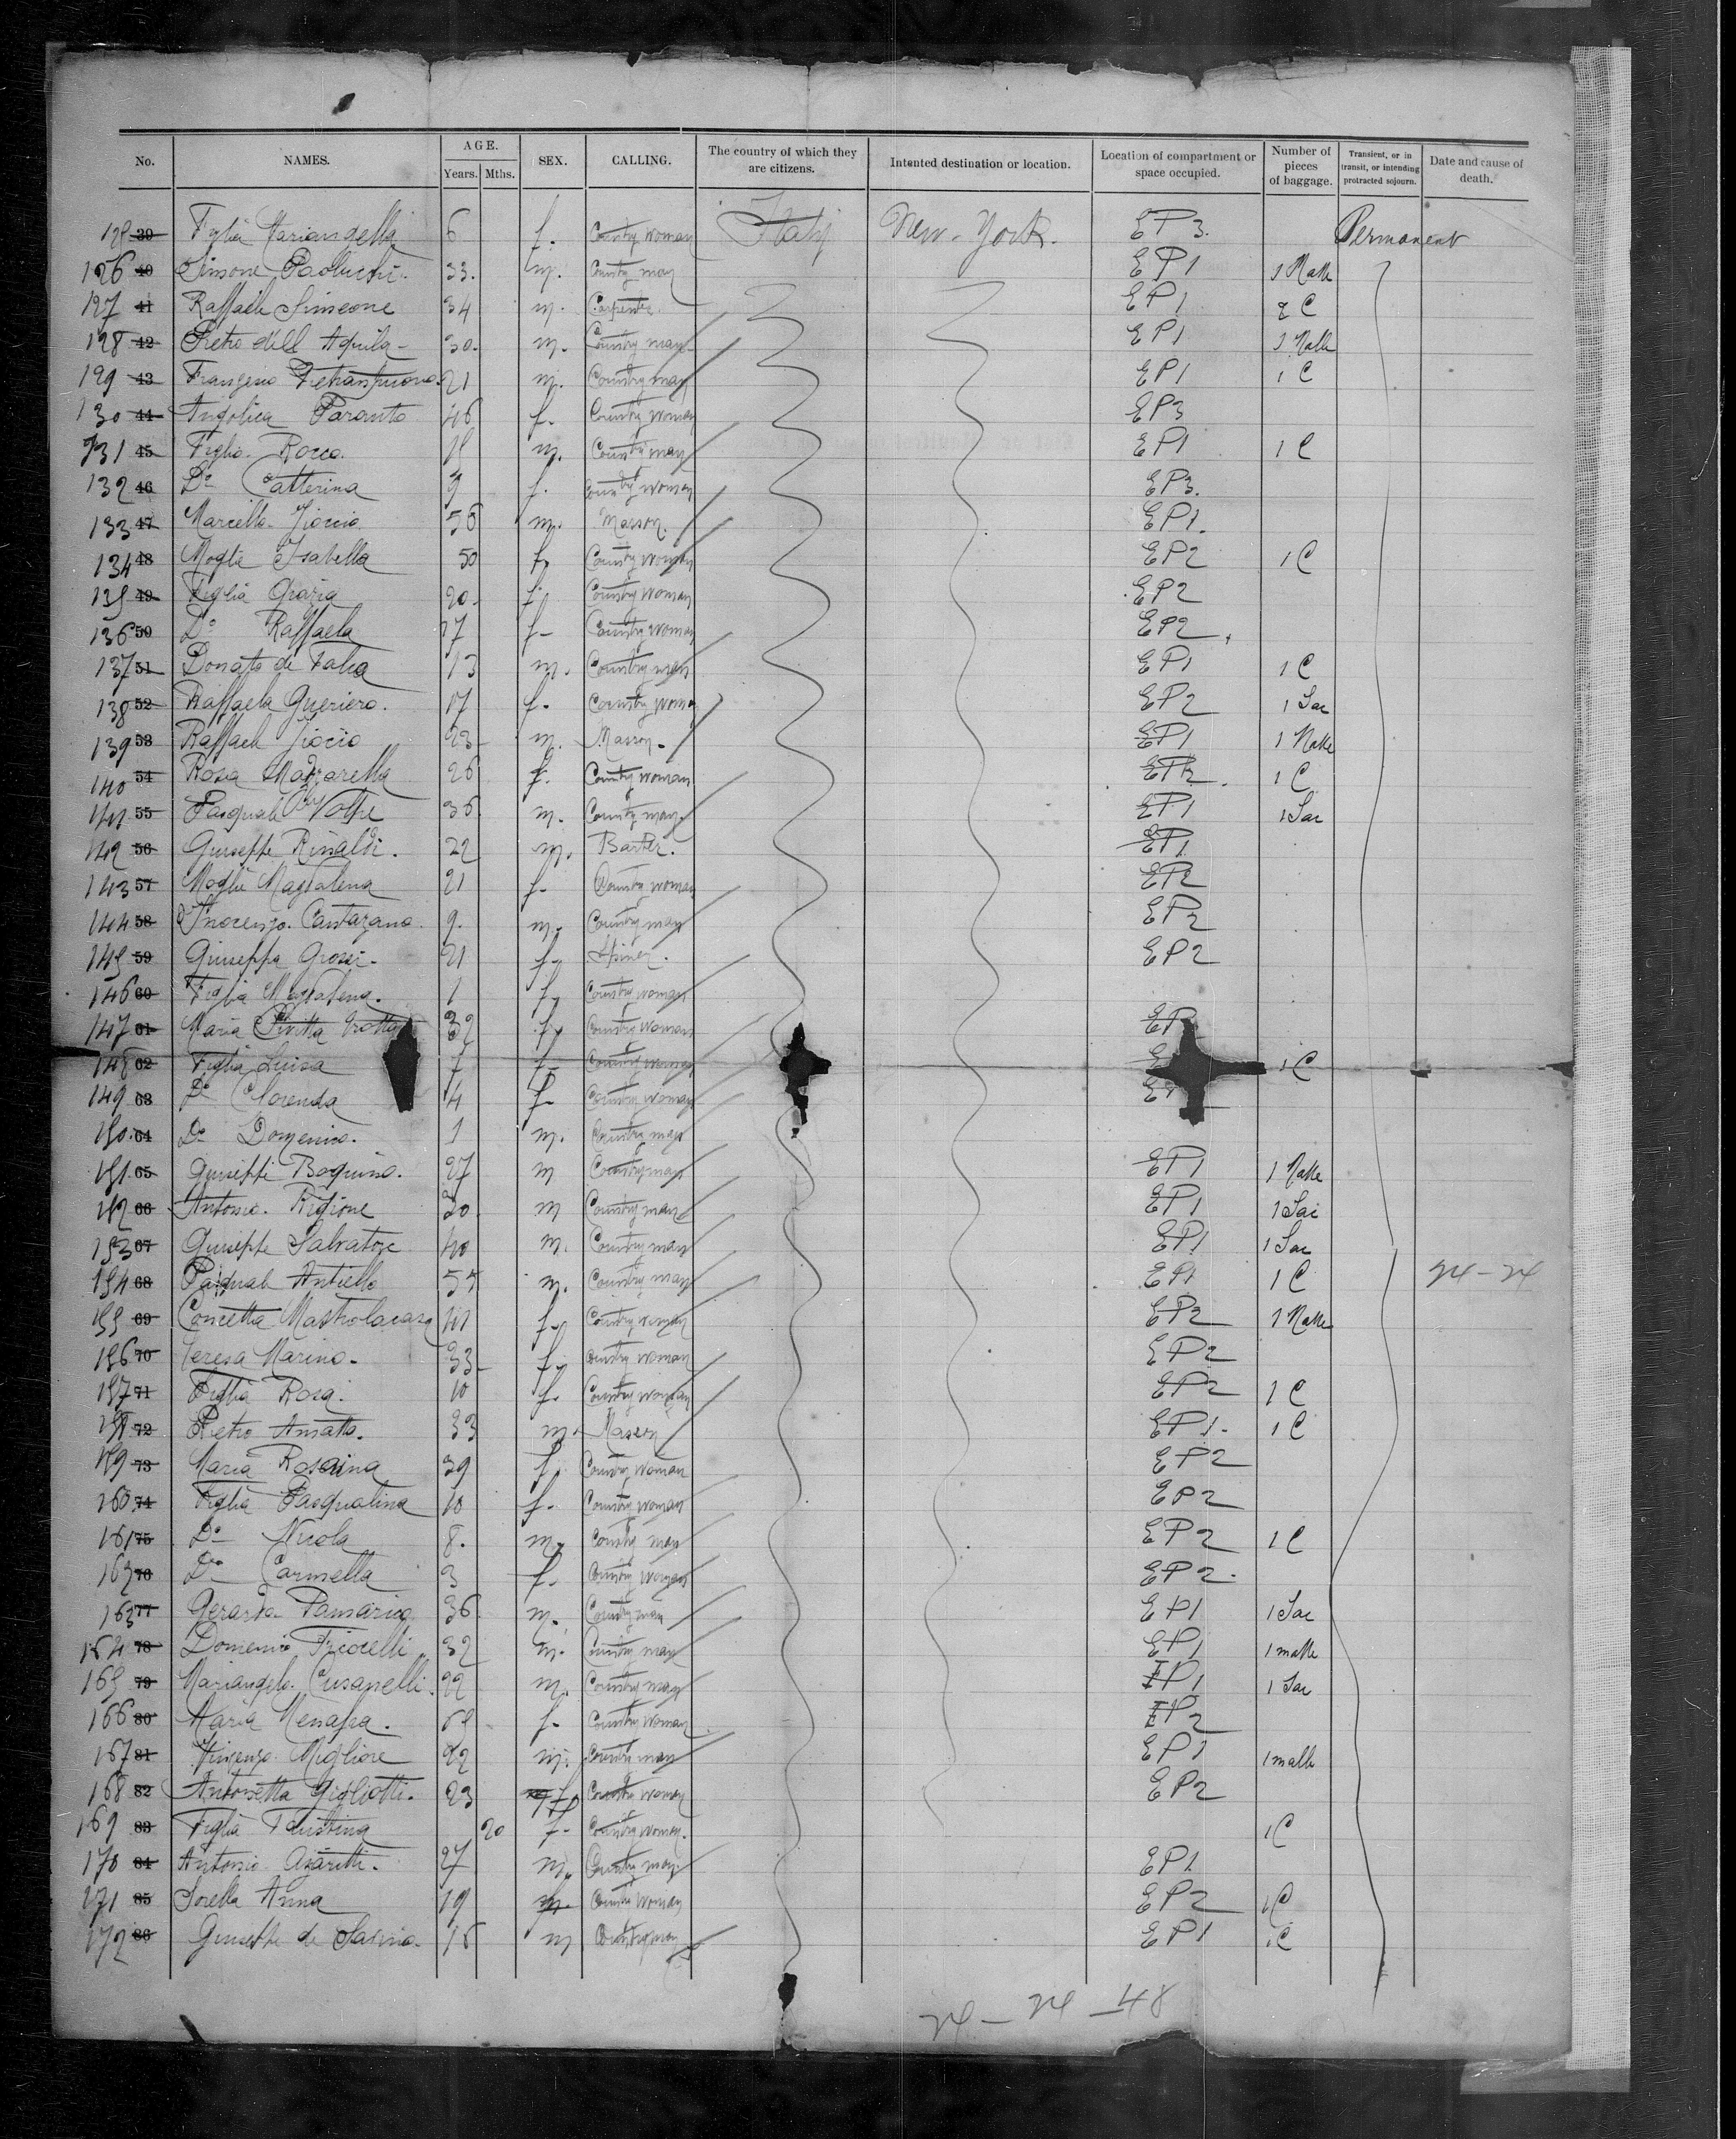 No. NAMES. AGE. Years. Mths. SEX. CALLING. The country of which they are citizens. Intented destination or location. Location of compartment or space occupied. Number of pieces of baggage. Transient, or in transit, or intending protracted sojourn. Date and cause of death.
125 39 Figlia Mariangella 6 f. Country woman Italy New-York. EP3. Permanent
126 40 Simone Paolucchi. 33. m. Country man EP1 1 Malle
127 41 Raffaele Simeone 34 m. Carpenter EP1 2 C
128 42 Pietro dell Aquila- 30. m. Country man EP1 1 Malle
129 43 21 m. Country man EP1 1 C
130 44 Angelica Paranto 46 f. Country woman EP3
131 45 Figlio Rocco. m. Country man EP1 1 C
132 46 Do Catterina 9 f. Country woman EP3.
133 47 Marcello 56 m. Masson. EP1.
134 48 Moglie Isabella 50 f. Country woman EP2 1 C
135 49 Figlia Grazia 20- f. Country woman EP2
136 50 Do Raffaela 17 f- Country woman EP2
137 51 Donato de Falca 13 m. Country man EP1 1 C
138 52 Raffaela Gueriero. 17 f- Country woman EP2 1 Sac
139 53 Raffaele 23- m. Masson. EP1 1 Malle
140 54 Rosa Mazzarella 26 f. Country woman EP2. 1 C
141 55 Pasquale Volpe 36 m. Country man. EP1 1 Sac
142 56 Giuseppe Rinaldi. 22 m. Barber. EP1
143 57 Moglie Magdalena 21 f- Country woman EP2
144 58 Cantazano. 9. m. Country man EP2
145 59 Giuseppa Grossi- 21 f- EP2
146 60 Figlia Magdalena. 1 f. Country woman
147 61 Maria 32 f. Country woman EP
148 62 Figlia Luisa 7 f- Country woman 1 C
149 63 Do Clorenda 4 f- Country woman
150. 64 Do Domenico. 1 m. Country man
151. 65 Giuseppe Boquino. 27 m Countryman EP1 1 Malle
152 66 Antonio. Rigione 30. m Country man EP1 1 Sac
153 67 Giuseppe Salvatore 40 m. Country man EP1 1 Sac
154 68 Pasquale Antiello m. Country man EP1 1 C 24-24
155 69 Concetta Mastrolacasa 41 f. Country woman EP2 1 Malle
156 70 Teresa Marino- 33- f. Country woman EP2
157 71 Figlia Rosa. 10 f. Country woman EP2 1 C
158 72 Pietro Amatto. 33 m. Masson EP1. 1 C
159 73 Maria Rosaina 39 f. Country woman EP2
160 74 Figlia Pasqualina 10 f- Country woman EP2
161 75 Do Nicola 8. m. Country man EP2 1 C
162 76 Do Carmella 3 f- Country woman EP2.
163 77 Gerardo 36 m. Country man EP1 1 Sac
164 78 Domenico Fiorelli 32 m. Country man EP1 1 malle
165 79 Mariangelo Cusanelli. 22 m. Country man EP1 1 Sac
166 80 Maria Menafra. f- Country woman EP2
167 81 Vincenzo Migliore 22 m. Country man EP1 1 malle
168 82 Antonetta Gigliotti. 23 f Country woman EP2
169 83 Figlia Faustina 20 f- Country woman. 1 C
170 84 Antonio 27 m. Country man. EP1
171 85 Sorella Anna 19 Country woman EP2 1 C
172 86 Giuseppe de Sarino- 16 m Countryman EP1 1 C
24-24-48